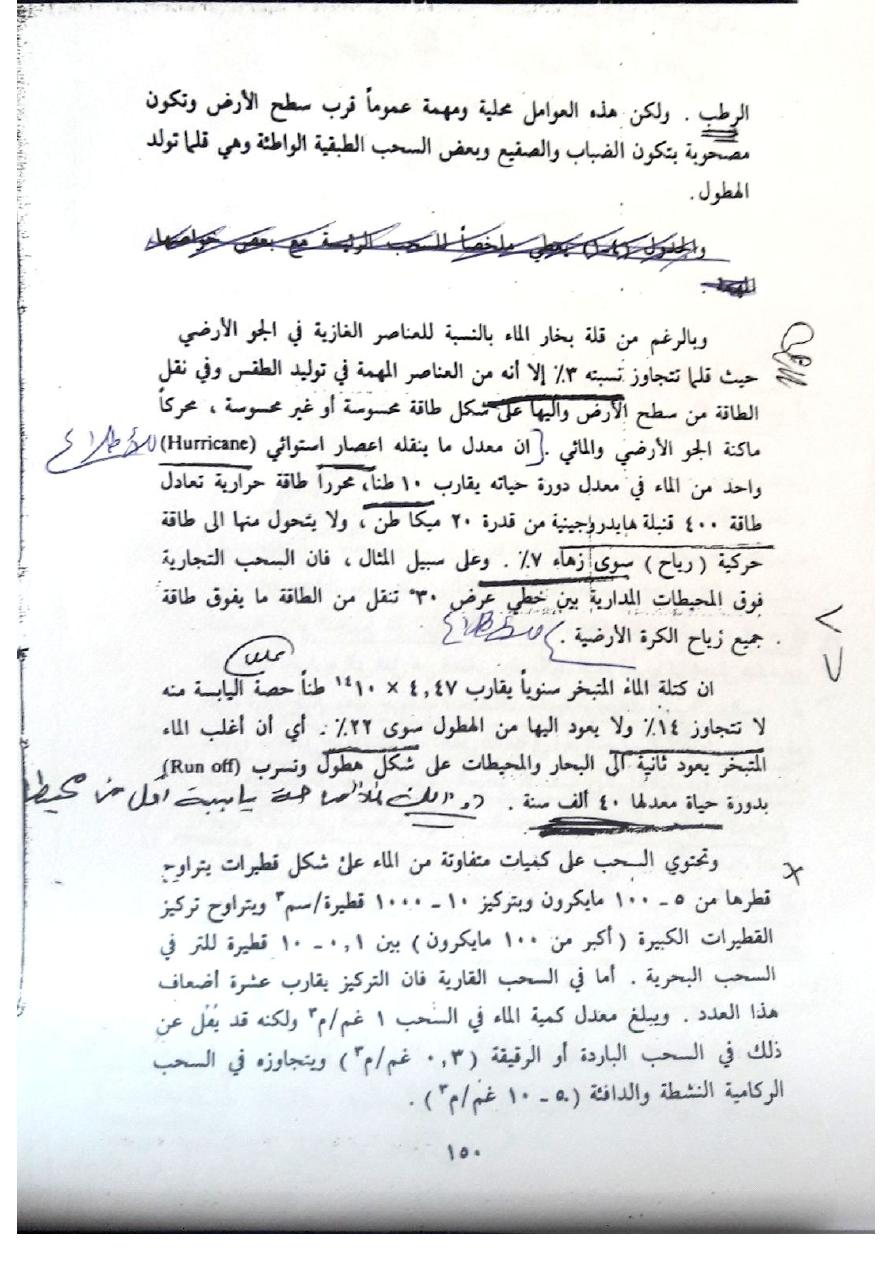 الرطب . ولكن هذه العوامل محلية ومهمة عموماً قرب سطح الأرض وتكون
مصحوبة بتكون الضباب والصقيع وبعض السحب الطبقية الواطئة وهي قلما تولد
الهطول .
والجدول (٤-١) يعطي ملخصاً للسحب الرئيسة مع بعض خواصها
وبالرغم من قلة بخار الماء بالنسبة للعناصر الغازية في الجو الأرضي
حيث قلما تتجاوز نسبته ٣٪ إلا أنه من العناصر المهمة في توليد الطقس وفي نقل
الطاقة من سطح الأرض واليها على شكل طاقة محسوسة أو غير محسوسة ، محركاً
ماكنة الجو الأرضي والمائي . ان معدل ما ينقله اعصار استوائي (Hurricane) للاطلاع
واحد من الماء في معدل دورة حياته يقارب ١٠ طناً، محرراً طاقة حرارية تعادل
طاقة ٤٠٠ قنبلة هايدروجينية من قدرة ٢٠ ميكا طن ، ولا يتحول منها الى طاقة
حركية ( رياح ) سوى زهاء ٧٪ . وعلى سبيل المثال ، فان السحب التجارية
فوق المحيطات المدارية بين خطي عرض ٣٠° تنقل من الطاقة ما يفوق طاقة
جميع زياح الكرة الأرضية . للاطلاع
ان كتلة الماء المتبخر سنوياً يقارب ٤,٤٧ × ١٠¹⁴ طناً حصة اليابسة منه
لا تتجاوز ١٤٪ ولا يعود اليها من الهطول سوى ٢٢٪ . أي أن أغلب الماء
المتبخر يعود ثانية الى البحار والمحيطات على شكل هطول وتسرب (Run off)
بدورة حياة معدلها ٤٠ ألف سنة .
وتحتوي السحب على كميات متفاوتة من الماء على شكل قطيرات يتراوح
قطرها من ٥ - ١٠٠ مايكرون وبتركيز ١٠ - ١٠٠٠ قطيرة/سم٣ ويتراوح تركيز
القطيرات الكبيرة ( أكبر من ١٠٠ مايكرون ) بين ٠,١ - ١٠ قطيرة للتر في
السحب البحرية . أما في السحب القارية فان التركيز يقارب عشرة أضعاف
هذا العدد . ويبلغ معدل كمية الماء في السحب ١ غم/م٣ ولكنه قد يقل عن
ذلك في السحب الباردة أو الرقيقة ( ٠,٣ غم/م٣ ) ويتجاوزه في السحب
الركامية النشطة والدافئة ( ٥ - ١٠ غم/م٣ ) .
١٥٠